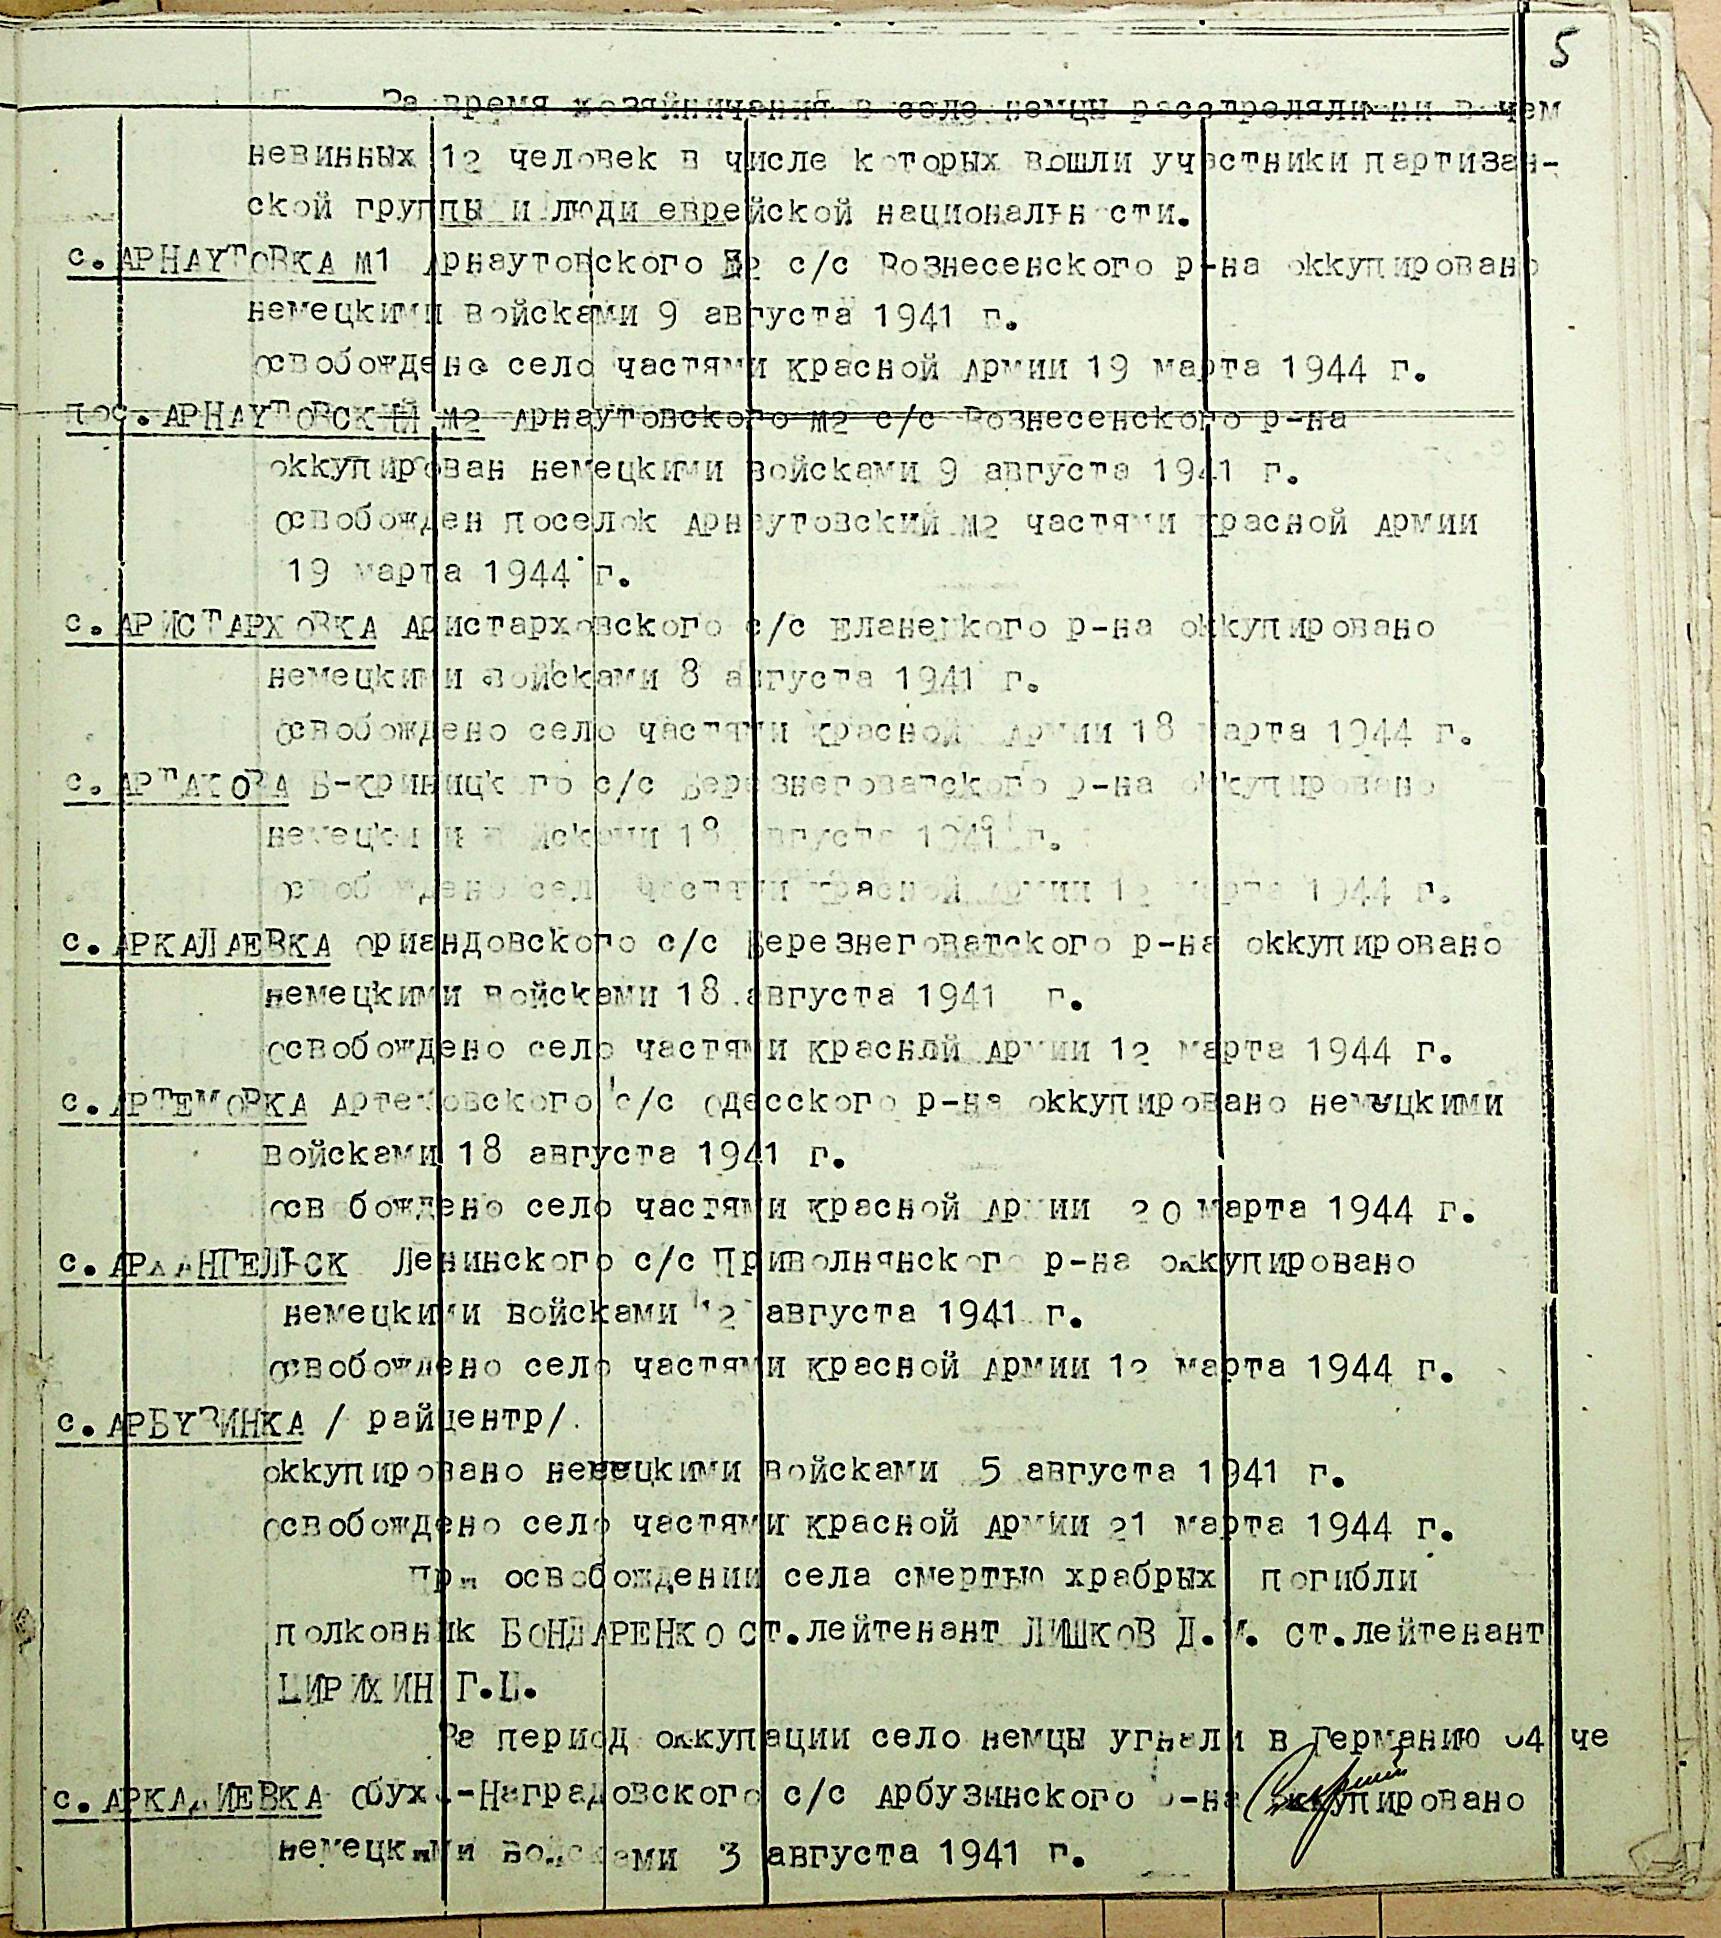 5
За время хозяйничения в селе немцы расстреляли ни в чем
невинных 12 человек в числе которых вошли участники партизан-
ской группы и люди еврейской национальн сти.
с. АРНАУТОВКА №1 Арнаутовского №2 с/с Вознесенского р-на оккупировано
немецкими войсками 9 августа 1941 г.
освобождено село частями красной Армии 19 марта 1944 г.
пос. АРНАУТОВСКИЙ №2 Арнаутовского №2 с/с Вознесенского р-на
оккупирован немецкими войсками 9 августа 1941 г.
освобожден поселок Арнаутовский №2 частями красной Армии
19 марта 1944 г.
с. АРИСТАРХОВКА Аристарховского с/с Еланецкого р-на оккупировано
немецкими войсками 8 августа 1941 г.
освобождено село частями красной Армии 18 марта 1944 г.
с. АРТАКОВА Б-криницкого с/с Березнеговатского р-на оккупировано
немецкими войсками 18 августа 1941 г.
освобождено село частями красной Армии 12 марта 1944 г.
с. АРКАЛАЕВКА ориандовского с/с Березнеговатского р-на оккупировано
немецкими войсками 18 августа 1941 г.
освобождено село частями красной Армии 12 марта 1944 г.
с. АРТЕМОВКА Артемовского с/с одесского р-на оккупировано немецкими
войсками 18 августа 1941 г.
осв бождено село частями красной Армии 20 марта 1944 г.
с. АРХАНГЕЛЬСК Ленинского с/с Привольнянского р-на оккупировано
немецкими войсками 12 августа 1941 г.
освобождено село частями красной Армии 12 марта 1944 г.
с. АРБУЗИНКА / райцентр/.
оккупировано немецкими войсками 5 августа 1941 г.
освобождено село частями красной Армии 21 марта 1944 г.
При освобождении села смертью храбрых погибли
полковник БОНДАРЕНКО ст.лейтенант ЛИШКОВ Д.И. ст.лейтенант
ЦИРИХИН Г.Ц.
За период оккупации село немцы угнали в Германию 64 че
с. АРКАДИЕВКА Обухо-Наградовского с/с Арбузинского р-на оккупировано
немецкими войсками 3 августа 1941 г.